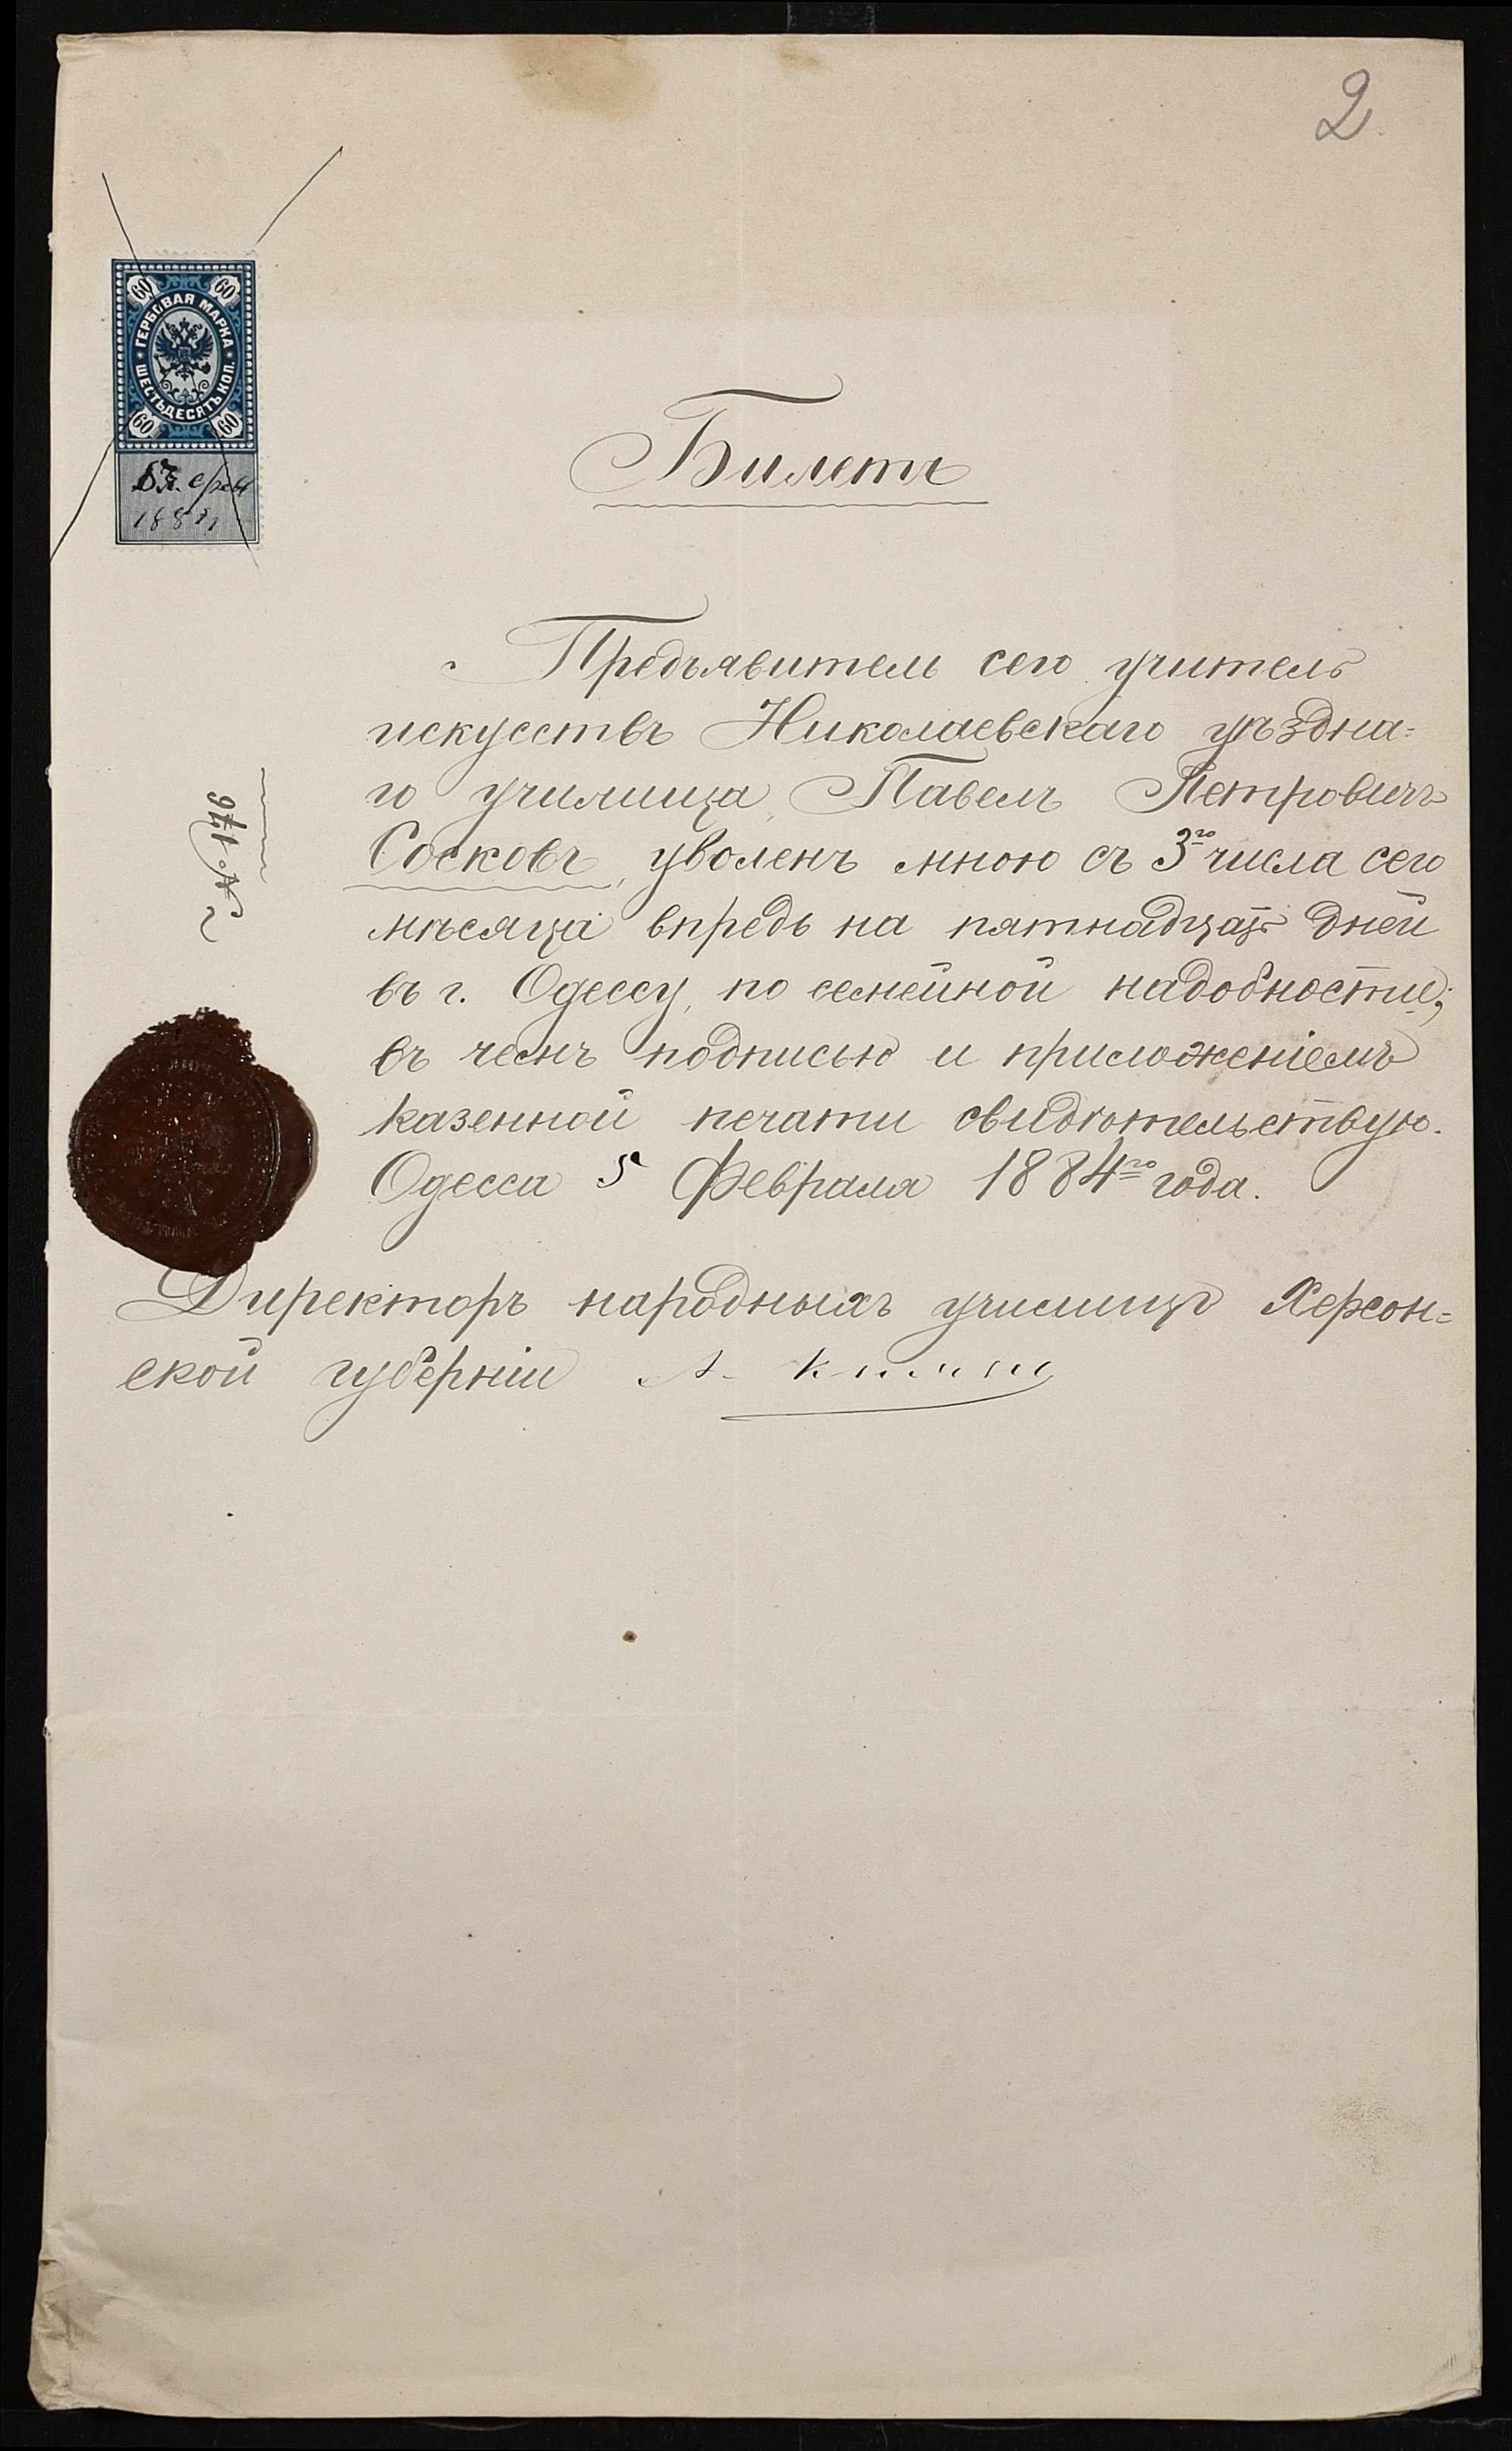 2
ГЕРБОВАЯ МАРКА
ШЕСТЬДЕСЯТЪ КОП.
60 60
60 60
5 Февр
1884
Билетъ
Предъявитель сего учитель
искусствъ Николаевскаго уѣздна=
го училища, Павелъ Петровичъ
Сосковъ, уволенъ мною съ 3го числа сего
мѣсяца впредь на пятнадцать дней
въ г. Одессу, по семейной надобности;
въ чемъ подписью и приложеніемъ
казенной печати свидѣтельствую.
Одесса 5 Февраля 1884го года.
№ 176
Директоръ народныхъ училищъ Херсон=
ской губерніи А.